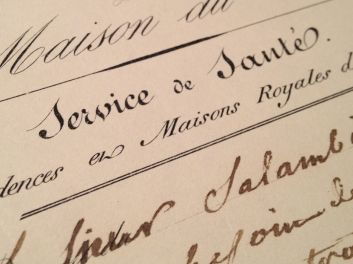 Maison du
Service de Santé.
dences en Maisons Royales d
Sieur Salamb
besoin de